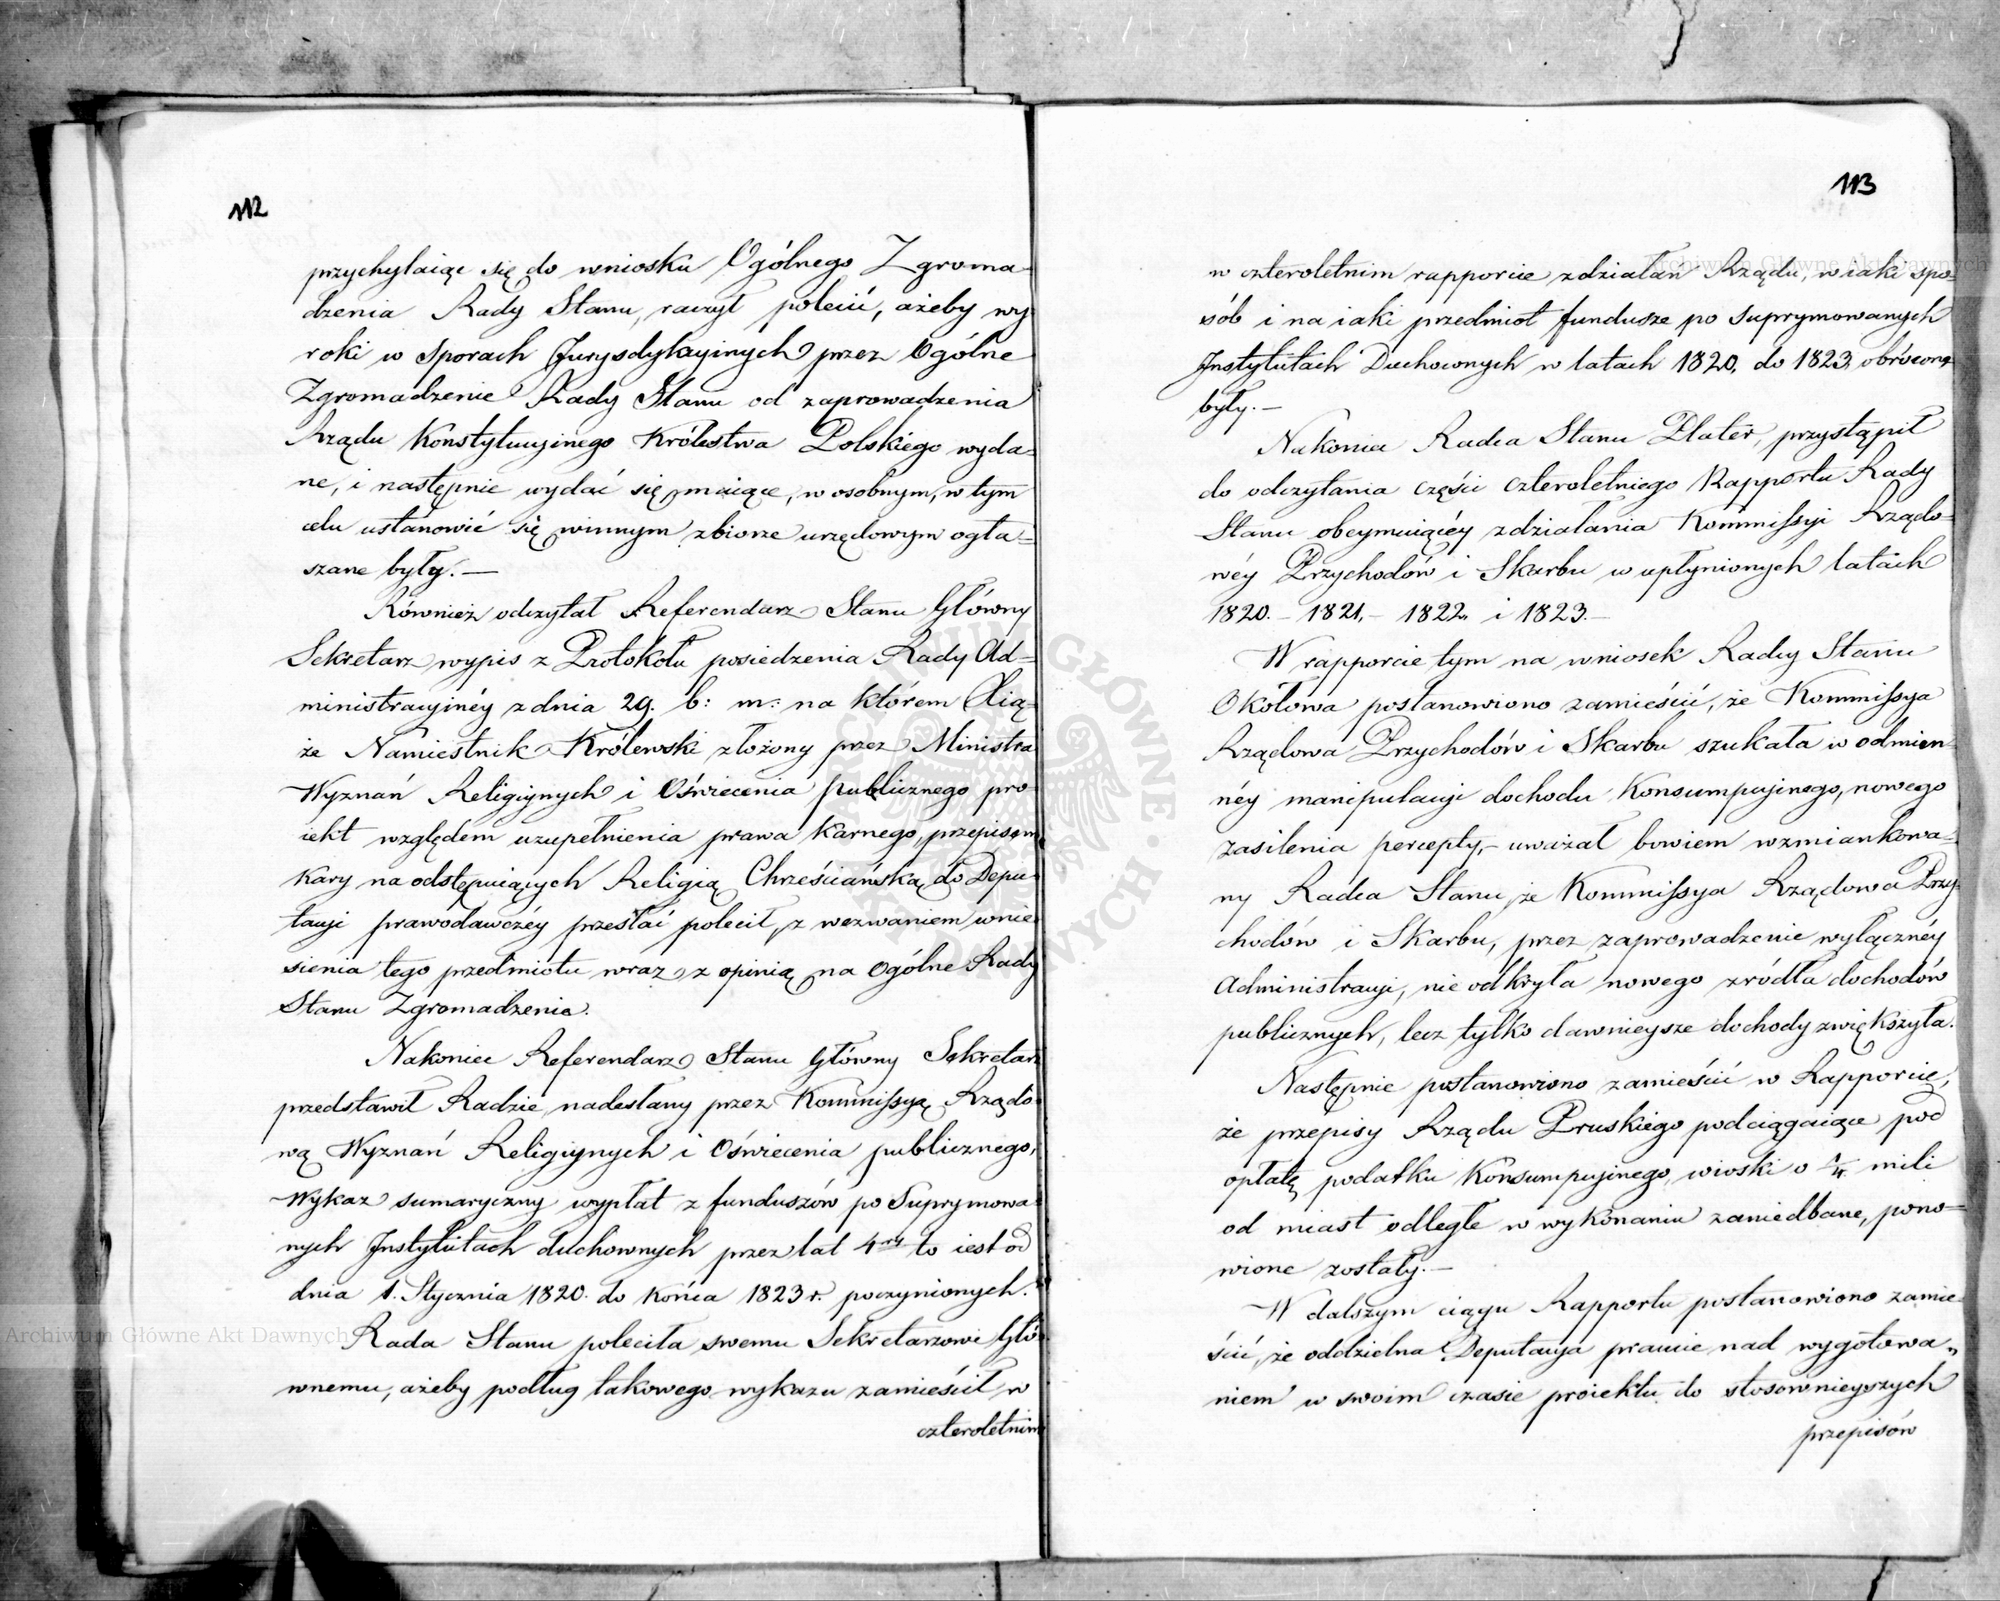 112
przychylaiąc się do wniosku Ogólnego Zgroma-
dzenia Rady Stanu, raczył polecić, ażeby wy
roki w sporach Jurysdykcyinych przez Ogólne
Zgromadzenie Rady Stanu od zaprowadzenia
Rządu Konstytucyinego Królestwa Polskiego wyda-
ne, i następnie wydać się maiące, w osobnym, w tym
celu ustanowić się winnym zbiorze urzędowym ogła-
szane były.—
Również odczytał Referendarz Stanu Główny
Sekretarz wypis z Protokołu posiedzenia Rady Ad-
ministracyinéy z dnia 29. b: m: na którem Xią-
że Namiestnik Królewski złożony przez Ministra
Wyznań Religiynych i Oświecenia publicznego pro-
iekt względem uzupełnienia prawa karnego, przepisem
kary na odstępuiących Religią Chrześciańską, do Depu-
tacyi prawodawczéy przesłać polecił, z wezwaniem wnie-
sienia tego przedmiotu wraz z opinią na Ogólne Rady
Stanu Zgromadzenie.
Nakoniec Referendarz Stanu Główny Sekretarz
przedstawił Radzie nadesłany przez Kommissyą Rządo-
wą Wyznań Religiynych i Oświecenia publicznego,
Wykaz sumaryczny wypłat z funduszów po Suprymowa-
nych Instytutach duchownych przez lat 4ry to iest od
dnia 1. Stycznia 1820. do końca 1823 r. poczynionych.
Rada Stanu poleciła swemu Sekretarzowi Głó-
wnemu, ażeby podług takowego wykazu zamieścił w
czteroletnim
113
w czteroletnim rapporcie z działań Rządu, w iaki spo-
sób i na iaki przedmiot fundusze po suprymowanych
Instytutach Duchownych w latach 1820, do 1823, obrócone
były.—
Nakoniec Radca Stanu Plater, przystąpił
do odczytania części czteroletniego Rapportu Rady
Stanu obeymuiącéy z działania Kommissyi Rządo-
wéy Przychodów i Skarbu w upłynionych latach
1820.— 1821,— 1822, i 1823.—
W rapporcie tym na wniosek Radcy Stanu
Okołowa postanowiono zamieścić, że Kommissya
Rządowa Przychodów i Skarbu szukała w odmien-
néy manipulacyi dochodu Konsumpcyinego, nowego
zasilenia percepty,— uważał bowiem wzmiankowa-
ny Radca Stanu, że Kommissya Rządowa Przy-
chodów i Skarbu, przez zaprowadzenie wyłącznéy
Administracyi, nie odkryła nowego źródła dochodów
publicznych, lecz tylko dawnieysze dochody zwiększyła.
Następnie postanowiono zamieścić w Rapporcie,
że przepisy Rządu Pruskiego podciągaiące pod
opłatę podatku Konsumpcyinego, wioski o 1/4 mili
od miast odległe w wykonaniu zaniedbane, pono-
wione zostały.—
W dalszym ciągu Rapportu postanowiono zamie-
ścić, że oddzielna Deputacya pracuie nad wygotowa„
niem w swoim czasie proiektu do stosownieyszych
przepisów
Archiwum Główne Akt Dawnych
Archiwum Główne Akt Dawnych